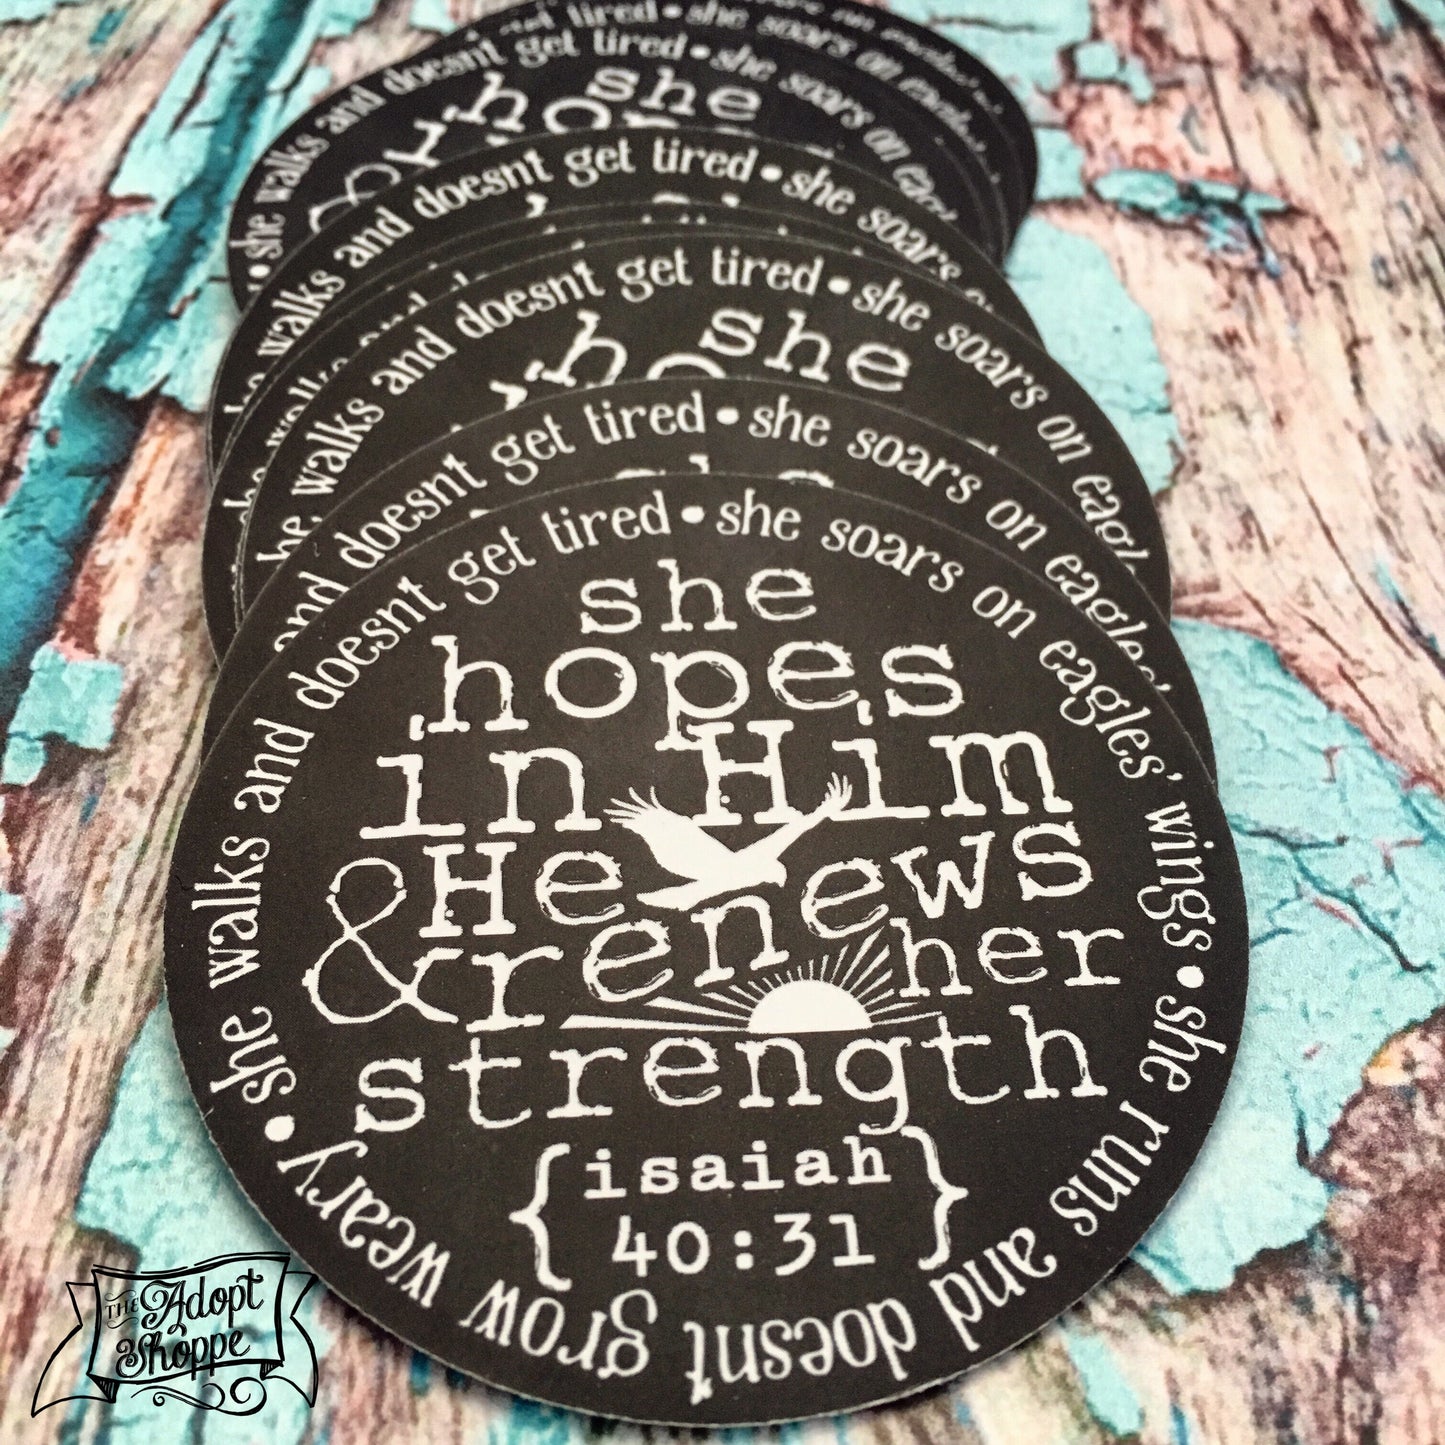 she walks and doesnt get tired • she soars on
she walks and doesnt get tired • she soars on
she
walks and doesnt get tired • she soars
she walks and doesnt get tired • she soars on
she
and doesnt get tired • she soars on eagles'
she walks and doesnt get tired • she soars on eagles' wings • she runs and doesnt grow weary •
she
hopes
in Him
& He
renews
her
strength
{isaiah
40:31}
THE Adopt
Shoppe